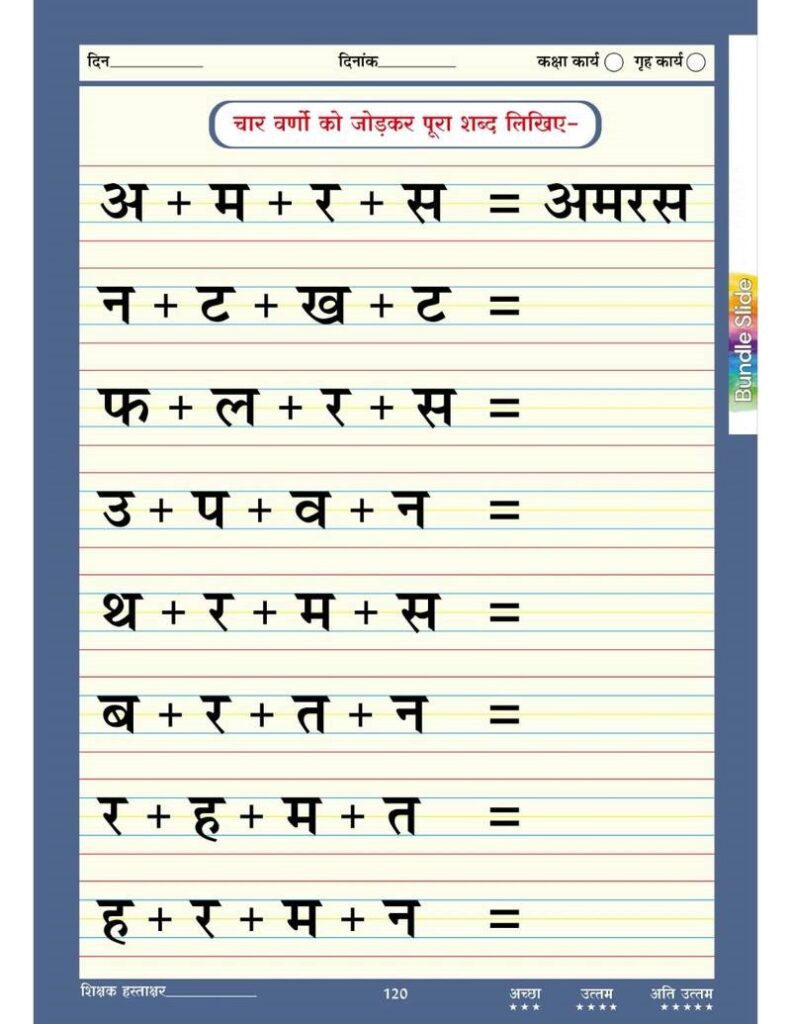 दिन__________ दिनांक__________ कक्षा कार्य गृह कार्य
चार वर्णो को जोड़कर पूरा शब्द लिखिए-
अ + म + र + स = अमरस
न + ट + ख + ट =
फ + ल + र + स =
उ + प + व + न =
थ + र + म + स =
ब + र + त + न =
र + ह + म + त =
ह + र + म + न =
Bundle Slide
शिक्षक हस्ताक्षर__________ 120 अच्छा उत्तम अति उत्तम
★★★ ★★★★ ★★★★★